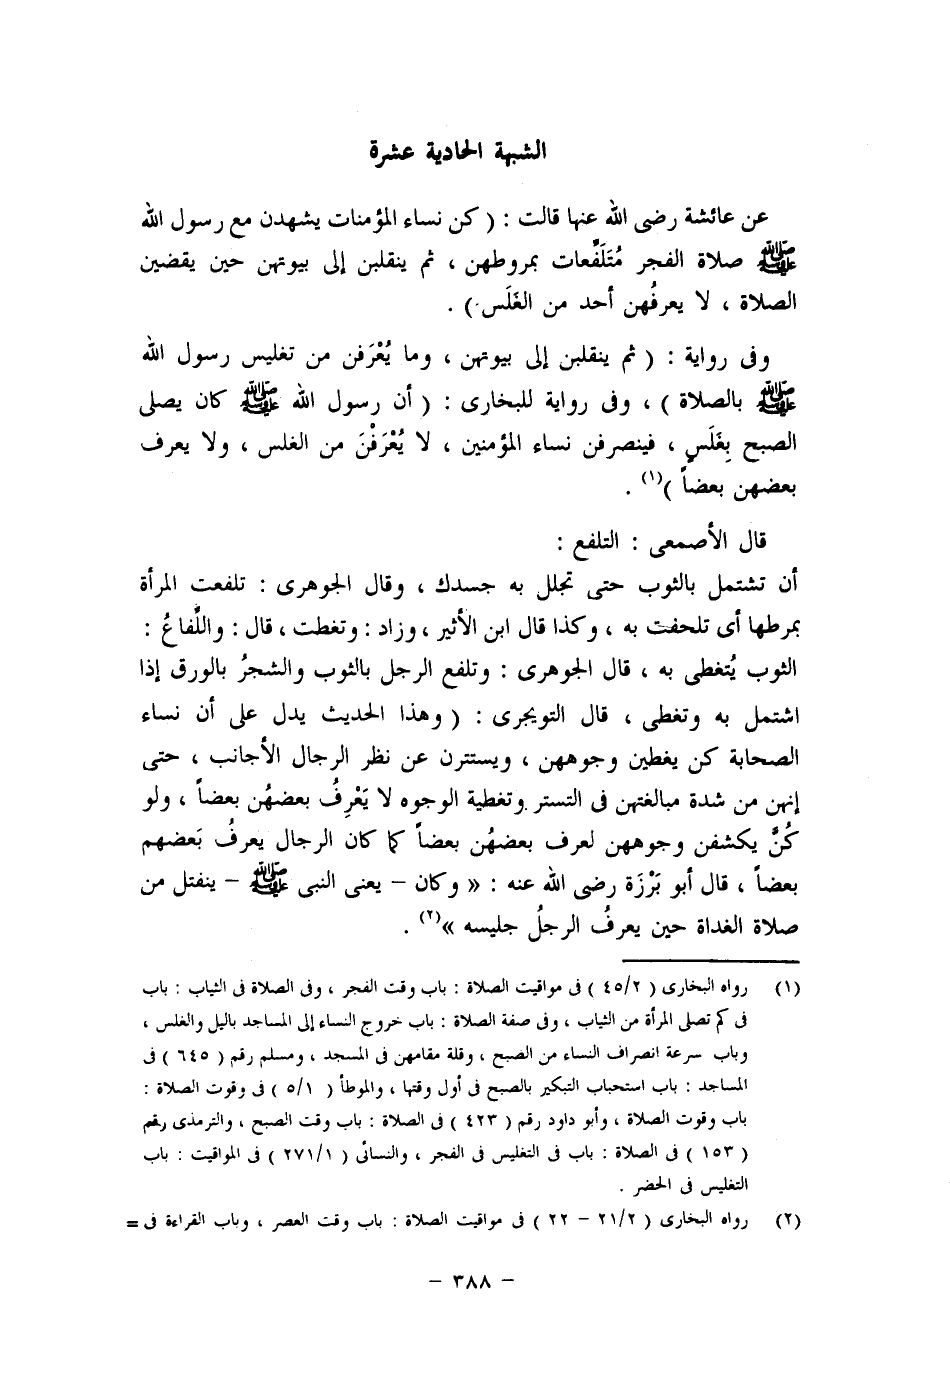 الشبهة الحادية عشرة
عن عائشة رضى الله عنها قالت : ( كن نساء المؤمنات يشهدن مع رسول الله
ﷺ صلاة الفجر مُتَلَفِّعات بمروطهن ، ثم ينقلبن إلى بيوتهن حين يقضين
الصلاة ، لا يعرفُهن أحد من الغَلَس ) .
وفى رواية : ( ثم ينقلبن إلى بيوتهن ، وما يُعْرَفن من تغليس رسول الله
ﷺ بالصلاة ) ، وفى رواية للبخارى : ( أن رسول الله ﷺ كان يصلى
الصبح بِغَلَسٍ ، فينصرفن نساء المؤمنين ، لا يُعْرَفْنَ من الغلس ، ولا يعرف
بعضهن بعضاً )(١) .
قال الأصمعى : التلفع :
أن تشتمل بالثوب حتى تجلل به جسدك ، وقال الجوهرى : تلفعت المرأة
بمرطها أى تلحفت به ، وكذا قال ابن الأثير ، وزاد : وتغطت ، قال : واللِّفاعُ :
الثوب يُتغطى به ، قال الجوهرى : وتلفع الرجل بالثوب والشجرُ بالورق إذا
اشتمل به وتغطى ، قال التويجرى : ( وهذا الحديث يدل على أن نساء
الصحابة كن يغطين وجوههن ، ويستترن عن نظر الرجال الأجانب ، حتى
إنهن من شدة مبالغتهن فى التستر وتغطية الوجوه لا يَعْرِفُ بعضهُن بعضاً ، ولو
كُنَّ يكشفن وجوههن لعرف بعضهُن بعضاً كما كان الرجال يعرفُ بَعضهم
بعضاً ، قال أبو بَرْزَة رضى الله عنه : « وكان – يعنى النبى ﷺ – ينفتل من
صلاة الغداة حين يعرفُ الرجلُ جليسه »(٢) .
(١) رواه البخارى ( ٤٥/٢ ) فى مواقيت الصلاة : باب وقت الفجر ، وفى الصلاة فى الثياب : باب
فى كم تصلى المرأة من الثياب ، وفى صفة الصلاة : باب خروج النساء إلى المساجد باليل والغلس ،
وباب سرعة انصراف النساء من الصبح ، وقلة مقامهن فى المسجد ، ومسلم رقم ( ٦٤٥ ) فى
المساجد : باب استحباب التبكير بالصبح فى أول وقتها ، والموطأ ( ٥/١ ) فى وقوت الصلاة :
باب وقوت الصلاة ، وأبو داود رقم ( ٤٢٣ ) فى الصلاة : باب وقت الصبح ، والترمذى رقم
( ١٥٣ ) فى الصلاة : باب فى التغليس فى الفجر ، والنسائى ( ٢٧١/١ ) فى المواقيت : باب
التغليس فى الحضر .
(٢) رواه البخارى ( ٢١/٢ – ٢٢ ) فى مواقيت الصلاة : باب وقت العصر ، وباب القراءة فى =
– ٣٨٨ –